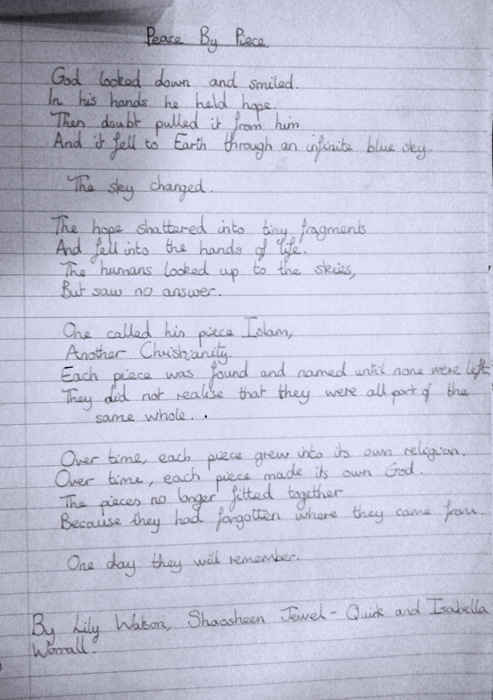 Peace By Piece
God looked down and smiled.
In his hands he held hope.
Then doubt pulled it from him
And it fell to Earth through an infinite blue sky.
The sky changed.
The hope shattered into tiny fragments
And fell into the hands of life.
The humans looked up to the skies,
But saw no answer.
One called his piece Islam,
Another Christianity.
Each piece was found and named until none were left
They did not realise that they were all part of the
same whole..
Over time, each piece grew into its own religion.
Over time, each piece made its own God.
The pieces no longer fitted together
Because they had forgotten where they came from.
One day they will remember.
By Lily Watson, Shaosheen Jewel-Quirk and Isabella
Worrall.